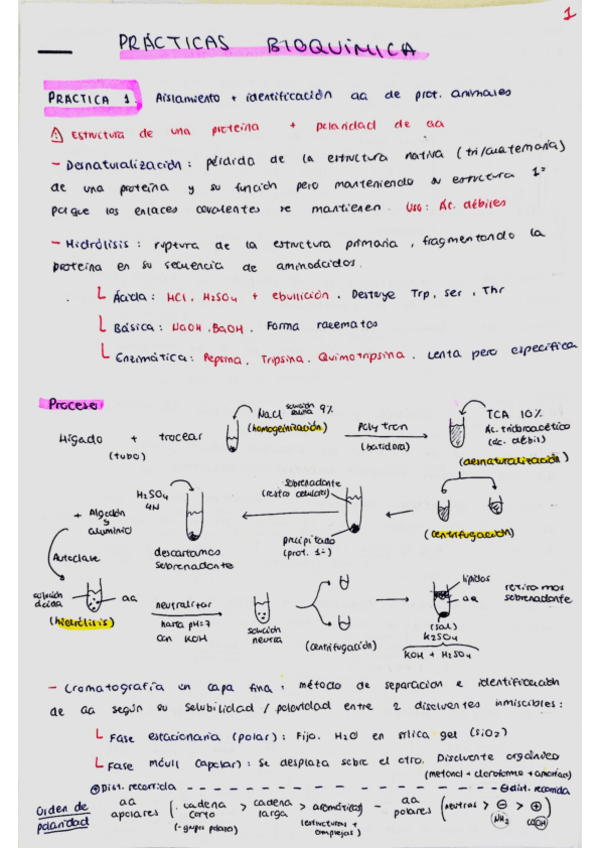 1
PRÁCTICAS BIOQUÍMICA
PRACTICA 1. Aislamiento + identificación aa de prot. animales
⚠ Estructura de una proteína + polaridad de aa
- Desnaturalización: pérdida de la estructura nativa (tri/cuaternaria)
de una proteína y su función pero manteniendo su estructura 1ª
porque los enlaces covalentes se mantienen. Uso: Ác. débiles
- Hidrólisis: ruptura de la estructura primaria, fragmentando la
proteína en su secuencia de aminoácidos.
Ácida: HCl, H2SO4 + ebullición. Destruye Trp, Ser, Thr
Básica: NaOH, BaOH. Forma racematos
Enzimática: Pepsina, Tripsina, Quimotripsina. Lenta pero específica
Proceso
Hígado + trocear
(tubo)
NaCl solución salina 9%
(homogeinización)
Polytron
(batidora)
TCA 10%
Ác. tricloroacético
(ác. débil)
(desnaturalización)
(centrifugación)
sobrenadante
(restos celulares)
precipitado
(prot. 1ª)
H2SO4
4N
descartamos
sobrenadante
+ Algodón
y
aluminio
Autoclave
solución
ácida
aa
(hidrólisis)
neutralizar
hasta pH=7
con KOH
solución
neutra
(centrifugación)
lípidos
aa
(sal)
K2SO4
KOH + H2SO4
retiramos
sobrenadante
- Cromatografía en capa fina: método de separación e identificación
de aa según su solubilidad / polaridad entre 2 disolventes inmiscibles:
Fase estacionaria (polar): Fija. H2O en sílica gel (SiO2)
Fase móvil (apolar): Se desplaza sobre el otro. Disolvente orgánico
(metanol + cloroformo + amoniaco)
⊕ Dist. recorrida - - - - - - - - - - - - - - - - - - ⊖ dist. recorrida
Orden de
polaridad
aa
apolares
(cadena
corta
(-grupos polares)
> cadena
larga
> aromáticos)
(estructuras +
complejas)
- aa
polares
(neutros > ⊖ > ⊕)
NH2 COOH